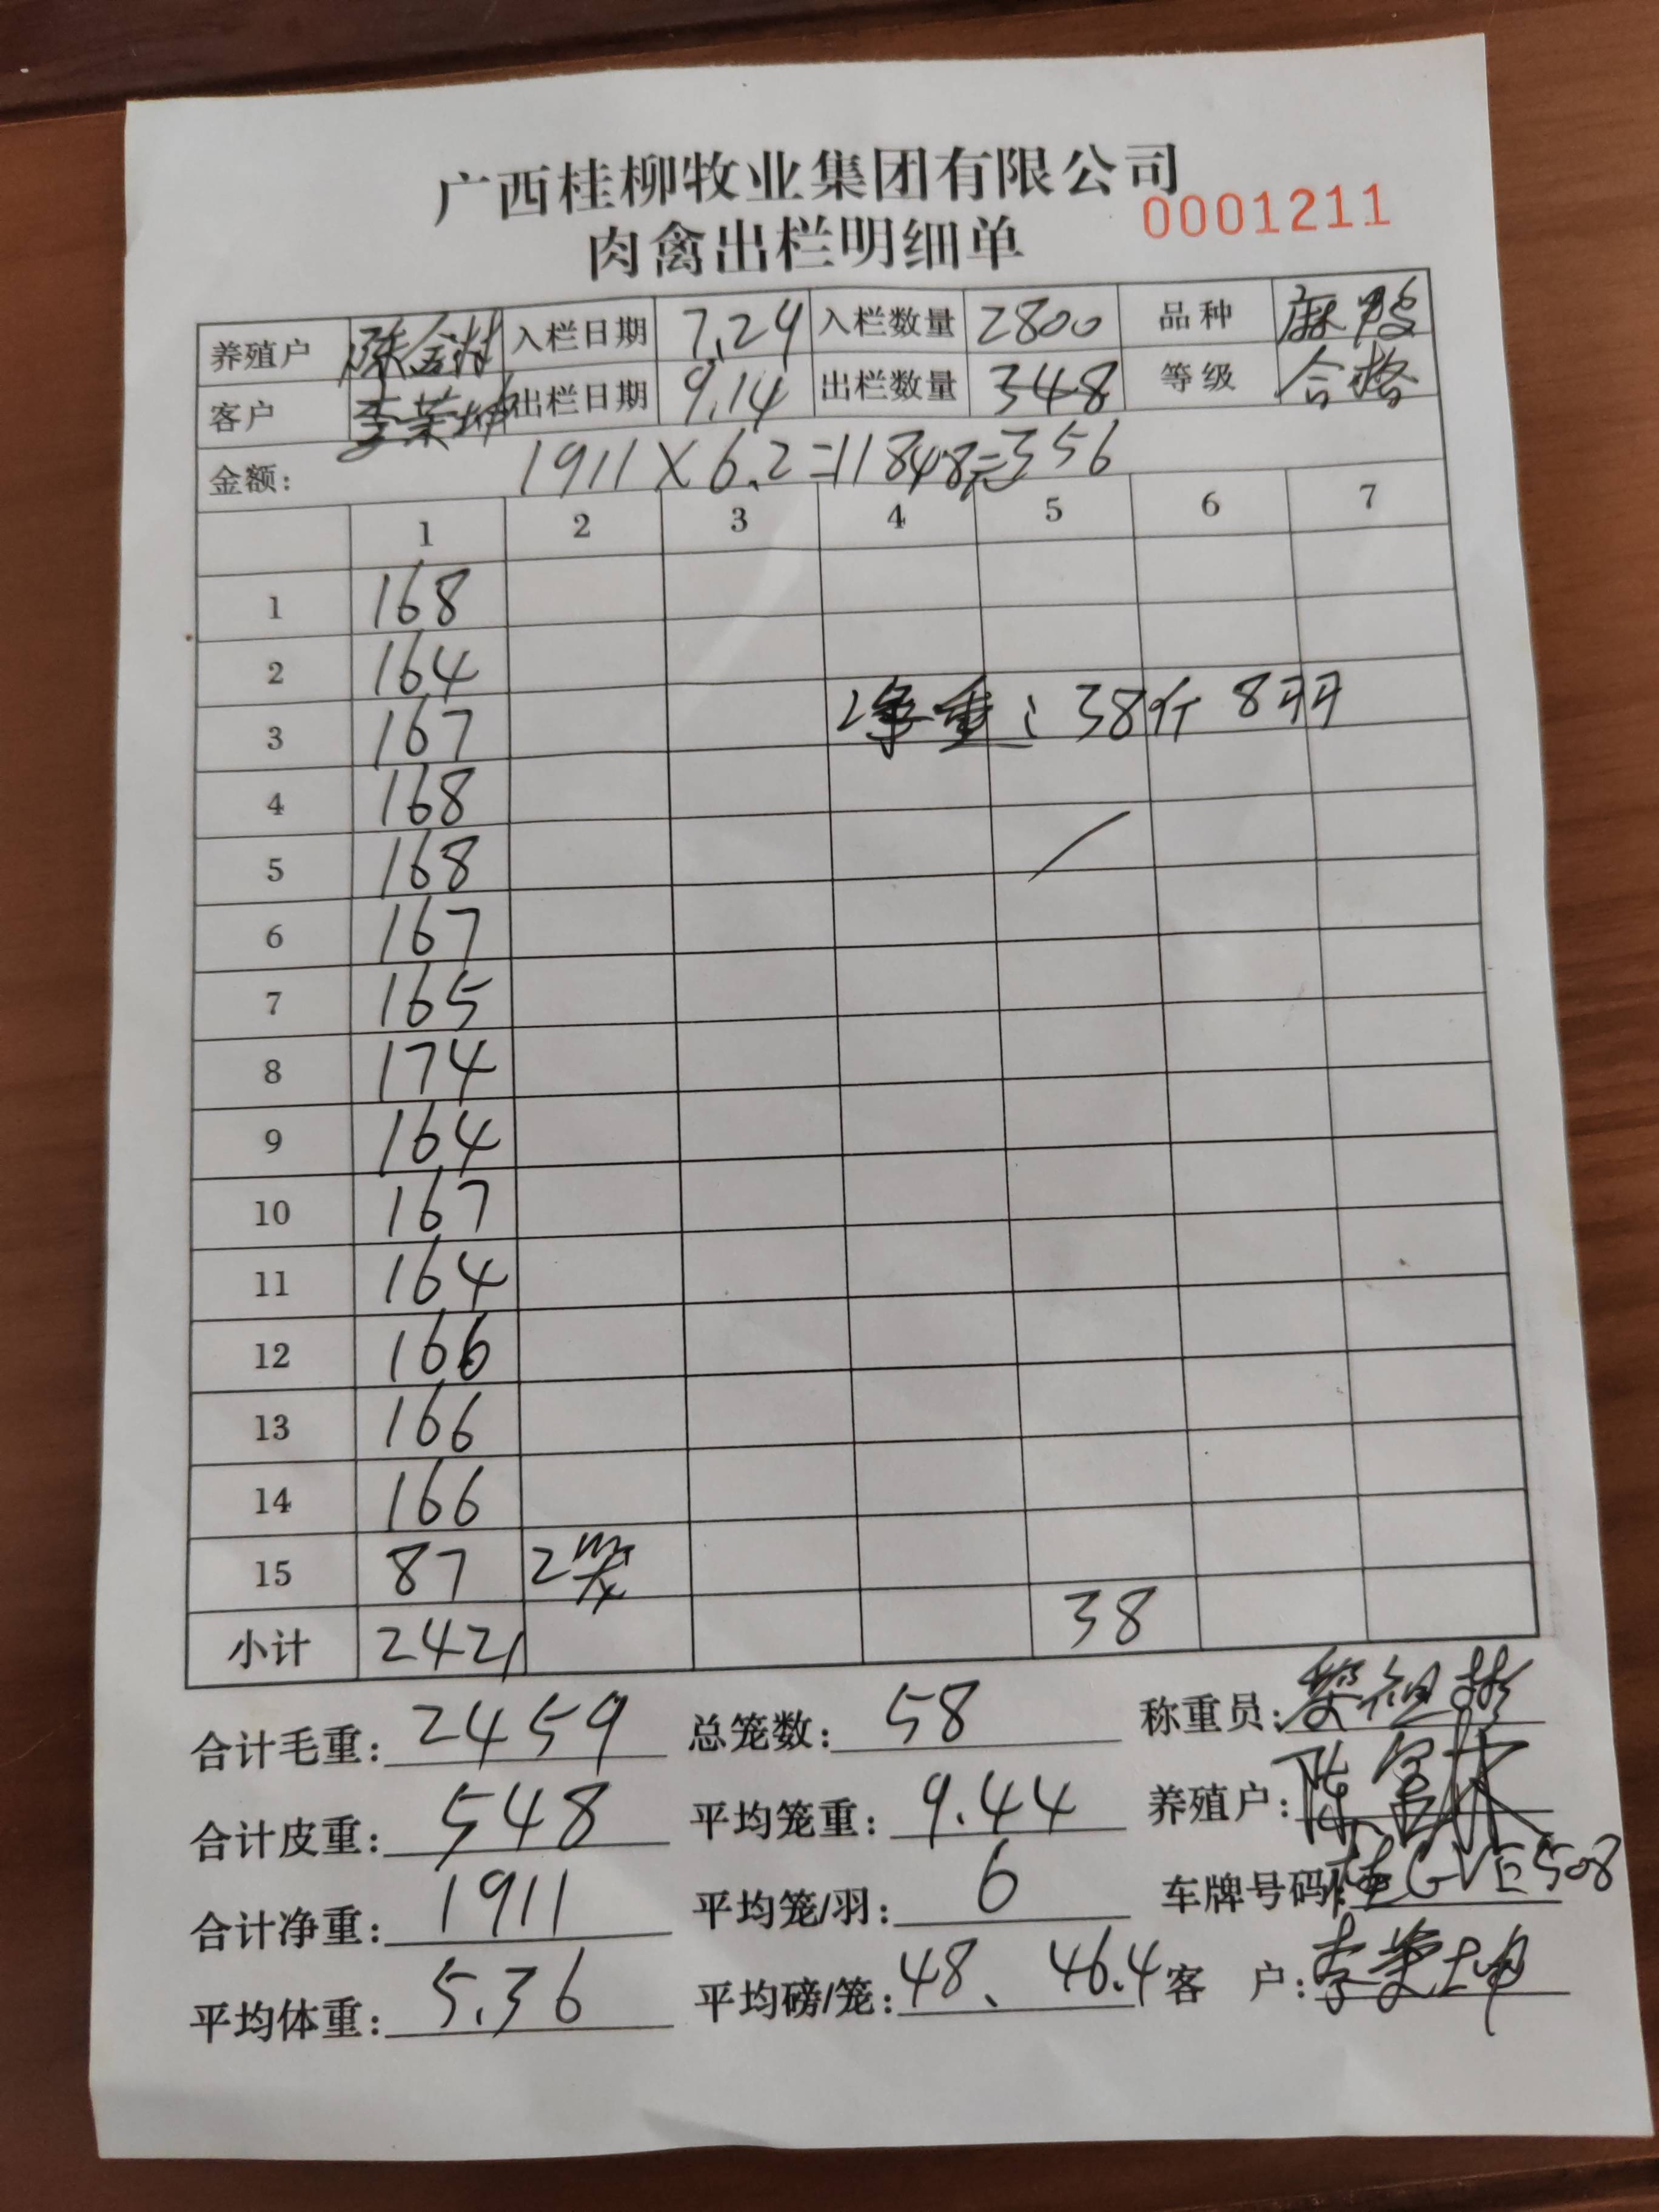 广西桂柳牧业集团有限公司
肉禽出栏明细单 0001211
养殖户 陈金林 入栏日期 7.24 入栏数量 2800 品种 麻鸭
客户 李荣坤 出栏日期 9.14 出栏数量 348 等级 合格
金额: 1911×6.2=11848元 356
1 2 3 4 5 6 7
1 168
2 164
3 167 净重:38斤8羽
4 168
5 168
6 167
7 165
8 174
9 164
10 167
11 164
12 166
13 166
14 166
15 87 2笼
小计 2421 38
合计毛重: 2459 总笼数: 58 称重员: 祖彬
合计皮重: 548 平均笼重: 9.44 养殖户: 陈金林
合计净重: 1911 平均笼/羽: 6 车牌号码: 桂GVE508
平均体重: 5.36 平均磅/笼: 48、46.4 客 户: 李荣坤